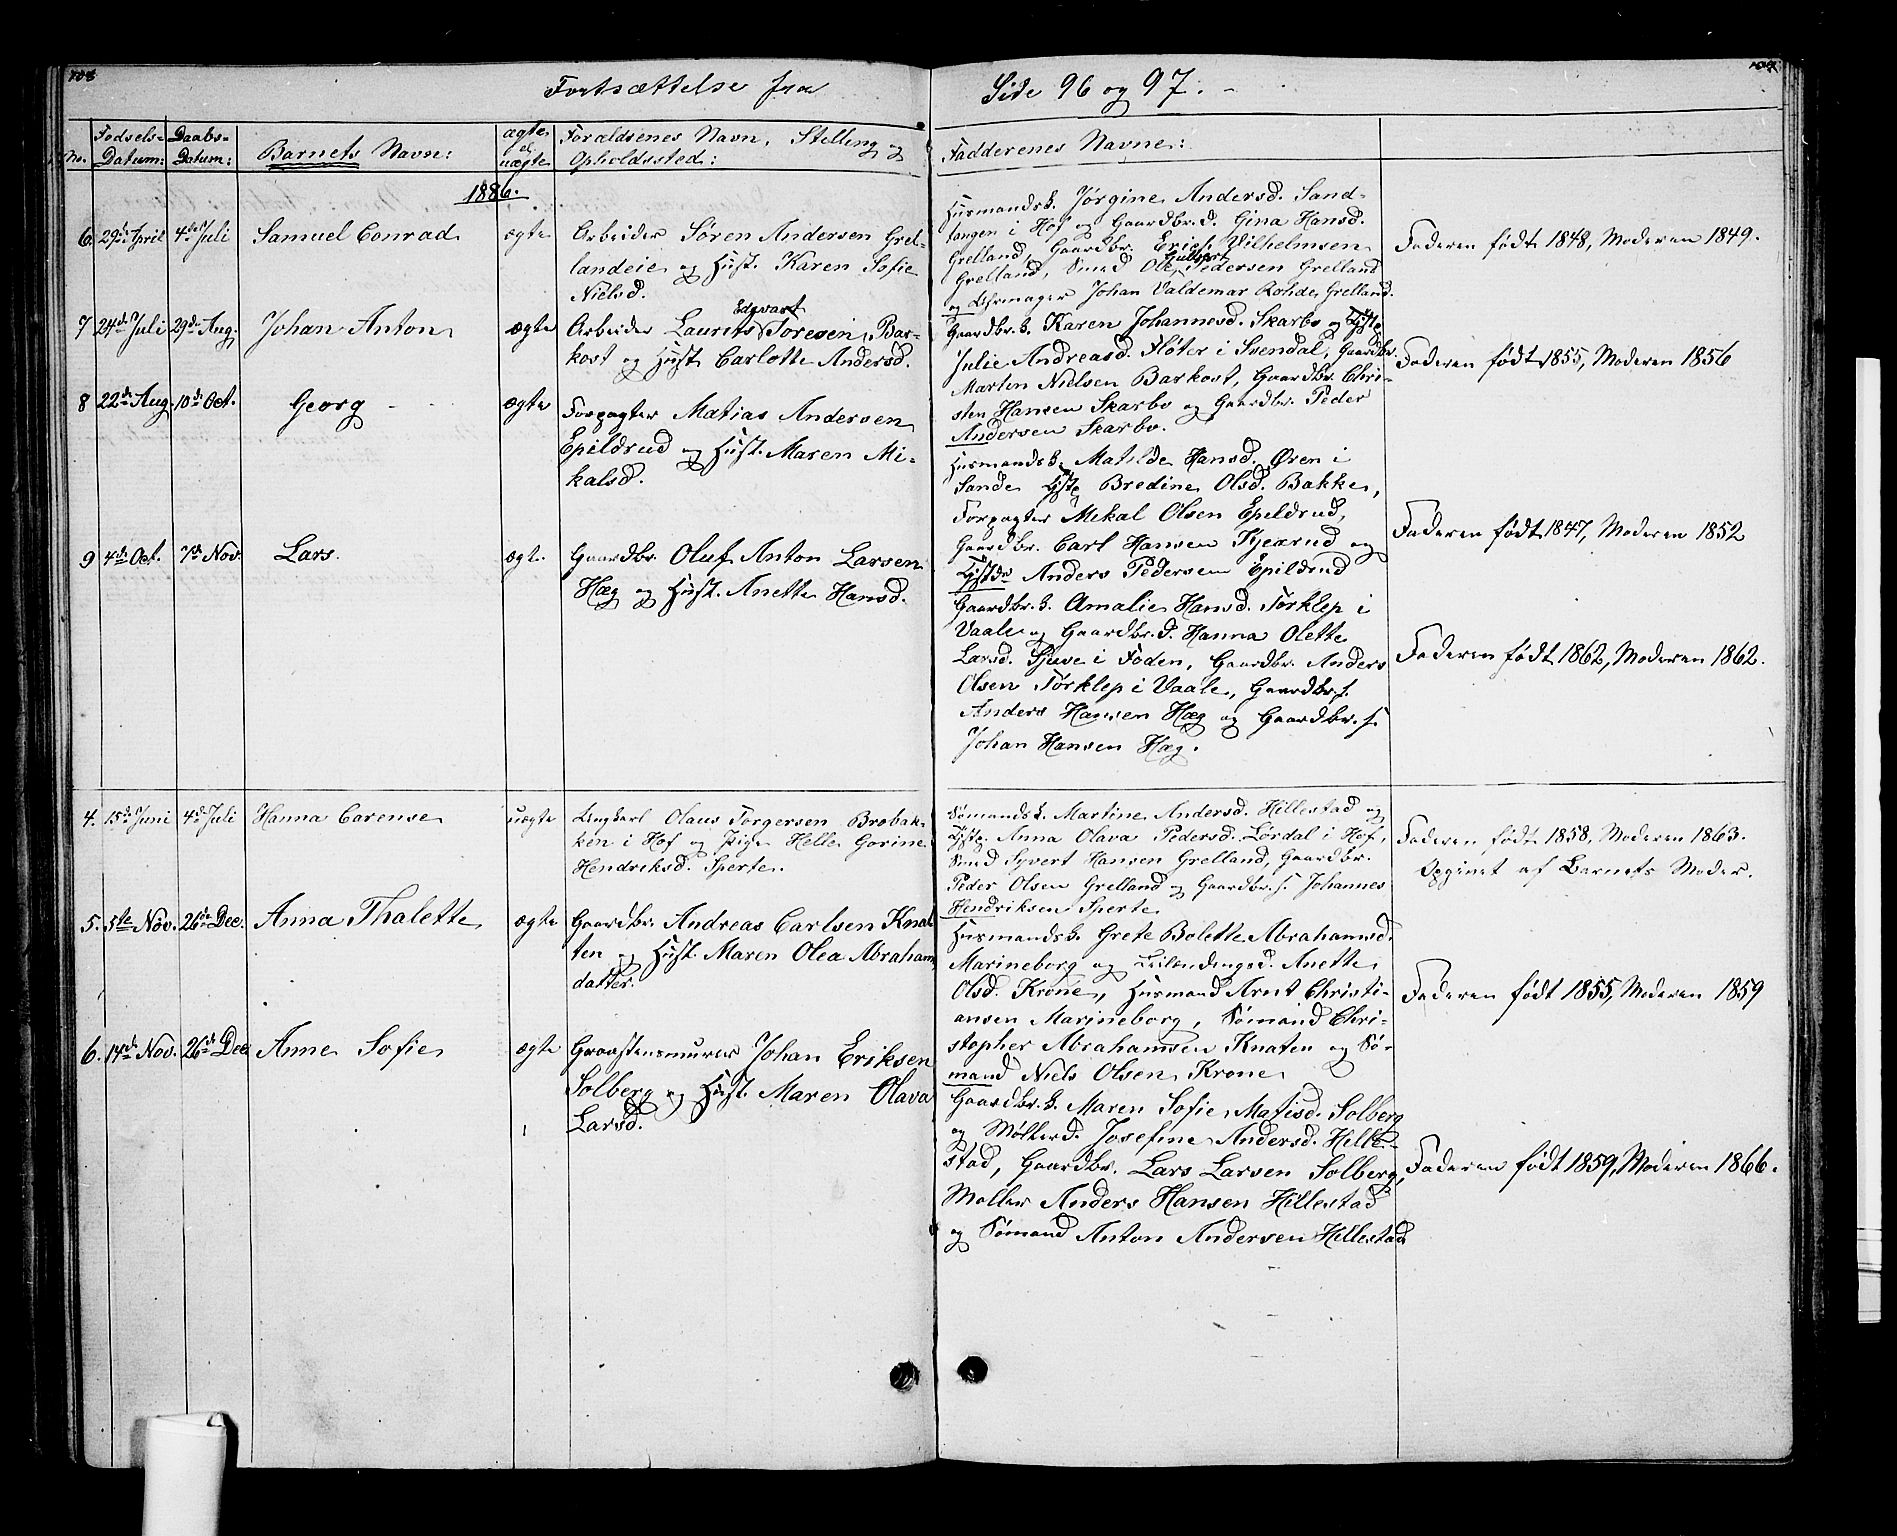 108
Fortsættelse fra Side 96 og 97.
No.
Fødsels-Datum:
Daabs-Datum:
Barnets Navn:
ægte el. uægte
Forældrenes Navn, Stilling og
Opholdssted:
Faddernes Navne:
1886.
6. 29de April 4de Juli Samuel Conrad ægte
Arbeider Søren Andersen Grel-
landeie og Hust. Karen Sofie
Nielsd.
Husmandsk. Jørgine Andersd. Sand-
tangen i Hof og Gaardbr.d. Gina Hansd.
Grelland, Gaardbr. Erich Vilhelmsen
Grelland, Smed Ole Gulbert Pedersen Grelland
og Uhrmager Johan Valdemar Rohde, Grelland.
Faderen født 1848, Moderen 1849.
7 24de Juli 29de Aug. Johan Anton ægte
Arbeider Laurits Edvart Toresen, Bar-
kost og Hust. Carlotte Andersd.
Gaardbr.k. Karen Johannesd. Skarbo og Pige
Julie Andreasd. Fløter i Svendal, Gaardbr.
Martin Nielsen Barkost, Gaardbr. Chri-
sten Hansen Skarbo og Gaardbr. Peder
Andersen Skarbo.
Faderen født 1855, Moderen 1856
8 22de Aug. 10de Oct. Georg ægte
Forpagter Matias Andersen
Epildrud og Hust. Maren Mi-
kalsd.
Husmandsk. Matilde Hansd. Øren i
Sande Pige Bredine Olsd. Bakke,
Forpagter Mekal Olsen Epildrud,
Gaardbr. Carl Hansen Tjærud og
Anders Pedersen Epildrud
Faderen født 1847, Moderen 1852
9 4de Oct. 7de Nov. Lars. ægte.
Gaardbr. Oluf Anton Larsen
Hæg og Hust. Anette Hansd.
Gaardbr.k. Amalie Hansd. Torklep i
Vaale og Gaardbr.d. Hanna Olette
Larsd. Sjuve i Foden, Gaardbr. Anders
Olsen Torklep i Vaale, Gaardbr.s.
Anders Hansen Hæg og Gaardbr.s.
Johan Hansen Hæg.
Faderen født 1862, Moderen 1862.
4. 15de Juni 4de Juli Hanna Carense uægte
Ungkarl Olaus Torgersen Brobak-
ken i Hof og Pige Helle Gorine
Hendriksd. Sperte.
Sømandsk. Martine Andersd. Hillestad og
Pige Anna Olava Pedersd. Lørdal i Hof,
Smed Syvert Hansen Grelland, Gaardbr.
Peder Olsen Grelland og Gaardbr.s. Johannes
Hendriksen Sperte
Faderen født 1858, Moderen 1863.
Opgivet af Barnets Moder.
5. 5te Nov. 26de Dec. Anna Thalette ægte
Gaardbr. Andreas Carlsen Knat-
ten og Hust. Maren Olea Abraham
datter.
Husmandsk. Grete Bolette Abrahamsd.
Marineborg og Leilændingsd. Anette
Olsd. Krone, Husmand Arnt Christi-
ansen Marineborg, Sømand Chri-
stopher Abrahamsen Knaten og Sø-
mand Niels Olsen Krone
Faderen født 1855, Moderen 1859
6. 14de Nov. 26de Dec Anne Sofie ægte
Graastensmurer Johan Eriksen
Solberg og Hust. Maren Olava
Larsd.
Gaardbr.k. Maren Sofie Matisd. Solberg
og Møllerd. Josefine Andersd. Hille-
stad, Gaardbr. Lars Larsen Solberg,
Møller Anders Hansen Hillestad
og Sømand Anton Andersen Hillestad
Faderen født 1859, Moderen 1866.